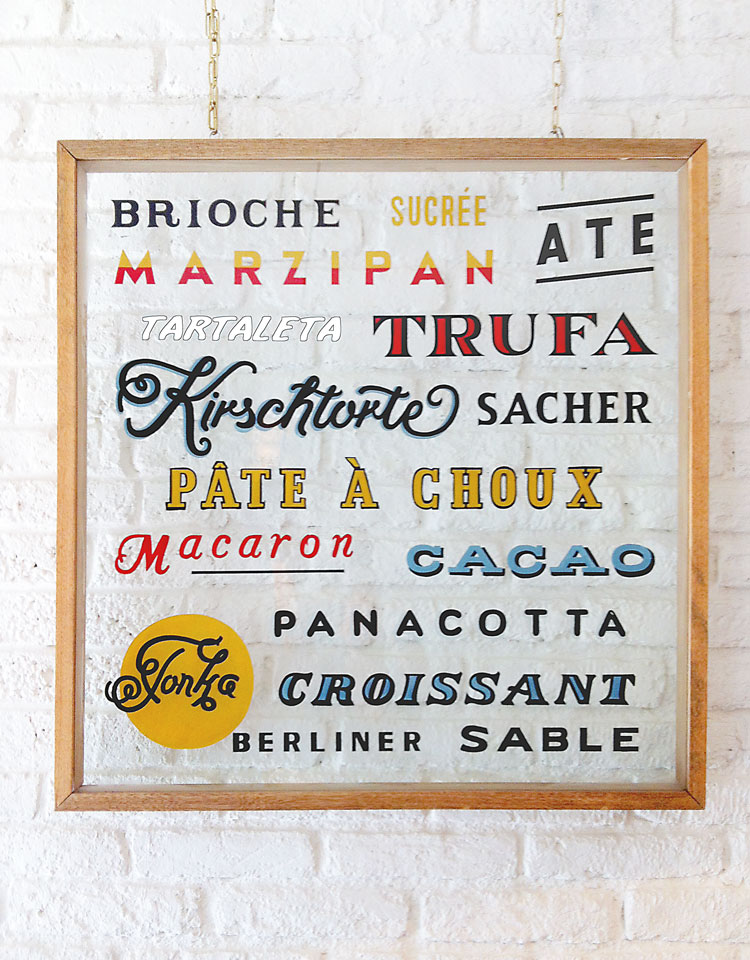 BRIOCHE SUCRÉE ATE
MARZIPAN
TARTALETA TRUFA
Kirschtorte SACHER
PÂTE À CHOUX
Macaron CACAO
PANACOTTA
Tonka CROISSANT
BERLINER SABLE